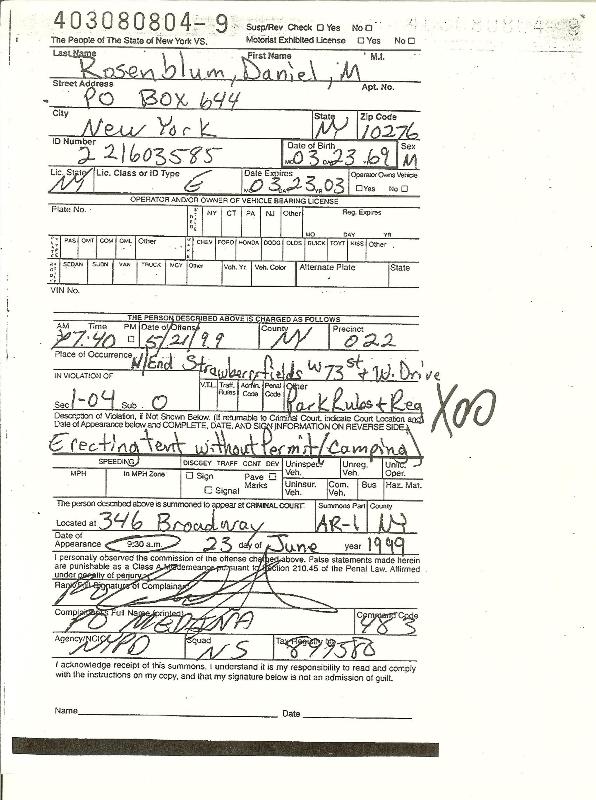 403080804-9 Susp/Rev Check □ Yes No □
The People of The State of New York VS. Motorist Exhibited License □ Yes No □
Last Name First Name M.I.
Rosenblum, Daniel, M
Street Address Apt. No.
PO Box 644
City State Zip Code
New York NY 10276
ID Number Date of Birth Sex
221603585 MO 03 23 69 M
Lic. State Lic. Class or ID Type Date Expires Operator Owns Vehicle
NY E 03 23 03 □ Yes No □
OPERATOR AND/OR OWNER OF VEHICLE BEARING LICENSE
Plate No. NY CT PA NJ Other Reg. Expires
MO DAY YR
PAS OMT COM OML Other CHEV FORD HONDA DODG OLDS BUICK TOYT NISS Other
SEDAN SUBN VAN TRUCK MCY Other Veh. Yr. Veh. Color Alternate Plate State
VIN No.
THE PERSON DESCRIBED ABOVE IS CHARGED AS FOLLOWS
AM Time PM Date of Offense County Precinct
7:40 □ 5/21/99 NY 022
Place of Occurrence N/End Strawberryfields W 73 st & W. Drive
IN VIOLATION OF V.T.L. Traff. Rules Admin. Code Penal Code Other
Sec 1-04 Sub O Park Rules + Reg
Description of Violation, if Not Shown Below. (If returnable to Criminal Court, indicate Court Location and
Date of Appearance below and COMPLETE, DATE, AND SIGN INFORMATION ON REVERSE SIDE.)
Erecting tent without Permit/(camping)
SPEEDING DISOBEY TRAFF CONT DEV Uninspec. Veh. Unreg. Veh. Unlic. Oper.
MPH in MPH Zone □ Sign Pave □ Marks
□ Signal Uninsur. Veh. Com. Veh. Bus Haz. Mat.
The person described above is summoned to appear at CRIMINAL COURT. Summons Part County
Located at 346 Broadway AR-1 NY
Date of Appearance 9:30 a.m. 23 day of June year 1999
I personally observed the commission of the offense charged above. False statements made herein
are punishable as a Class A Misdemeanor pursuant to Section 210.45 of the Penal Law. Affirmed
under penalty of perjury.
Rank/Full Signature of Complainant
Complainant's Full Name (printed) Command Code
PO MEDINA
Agency/NCIC Squad Tax Registry No.
NYPD NS 899588
I acknowledge receipt of this summons. I understand it is my responsibility to read and comply
with the instructions on my copy, and that my signature below is not an admission of guilt.
Name Date